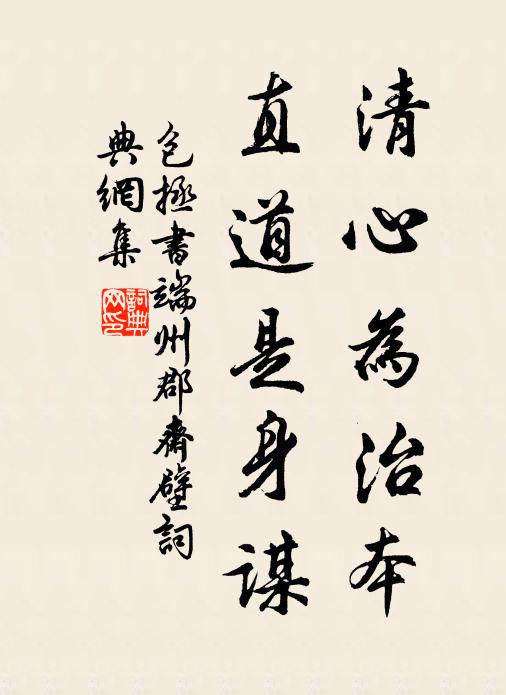 清心為治本
直道是身謀
包拯書端州郡齋壁詞
典網集
詞典
网印